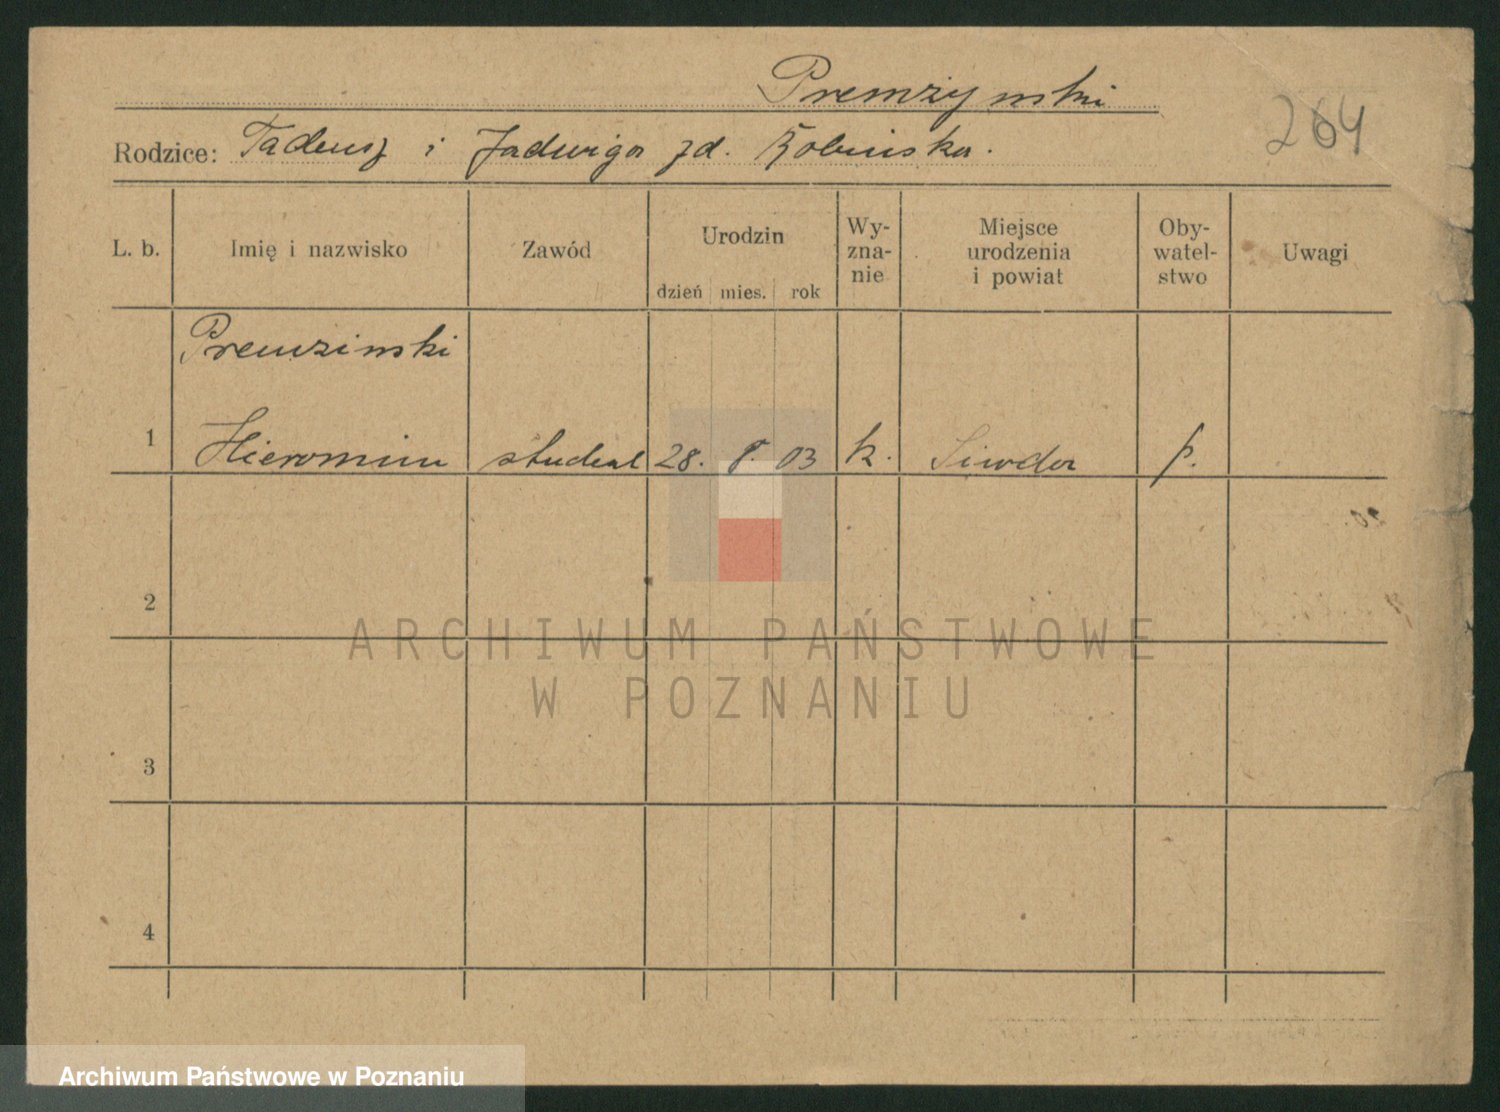 Premzynski
264
Rodzice: Tadeusz i Jadwiga zd.
L. b. Imię i nazwisko Zawód Urodzin dzień mies. rok Wy-zna-nie Miejsce urodzenia i powiat Oby-watel-stwo Uwagi
Premzinski
1 Hieronim student 28. 8. 03 k. p.
20.
2
ARCHIWUM PAŃSTWOWE
W POZNANIU
3
4
Archiwum Państwowe w Poznaniu